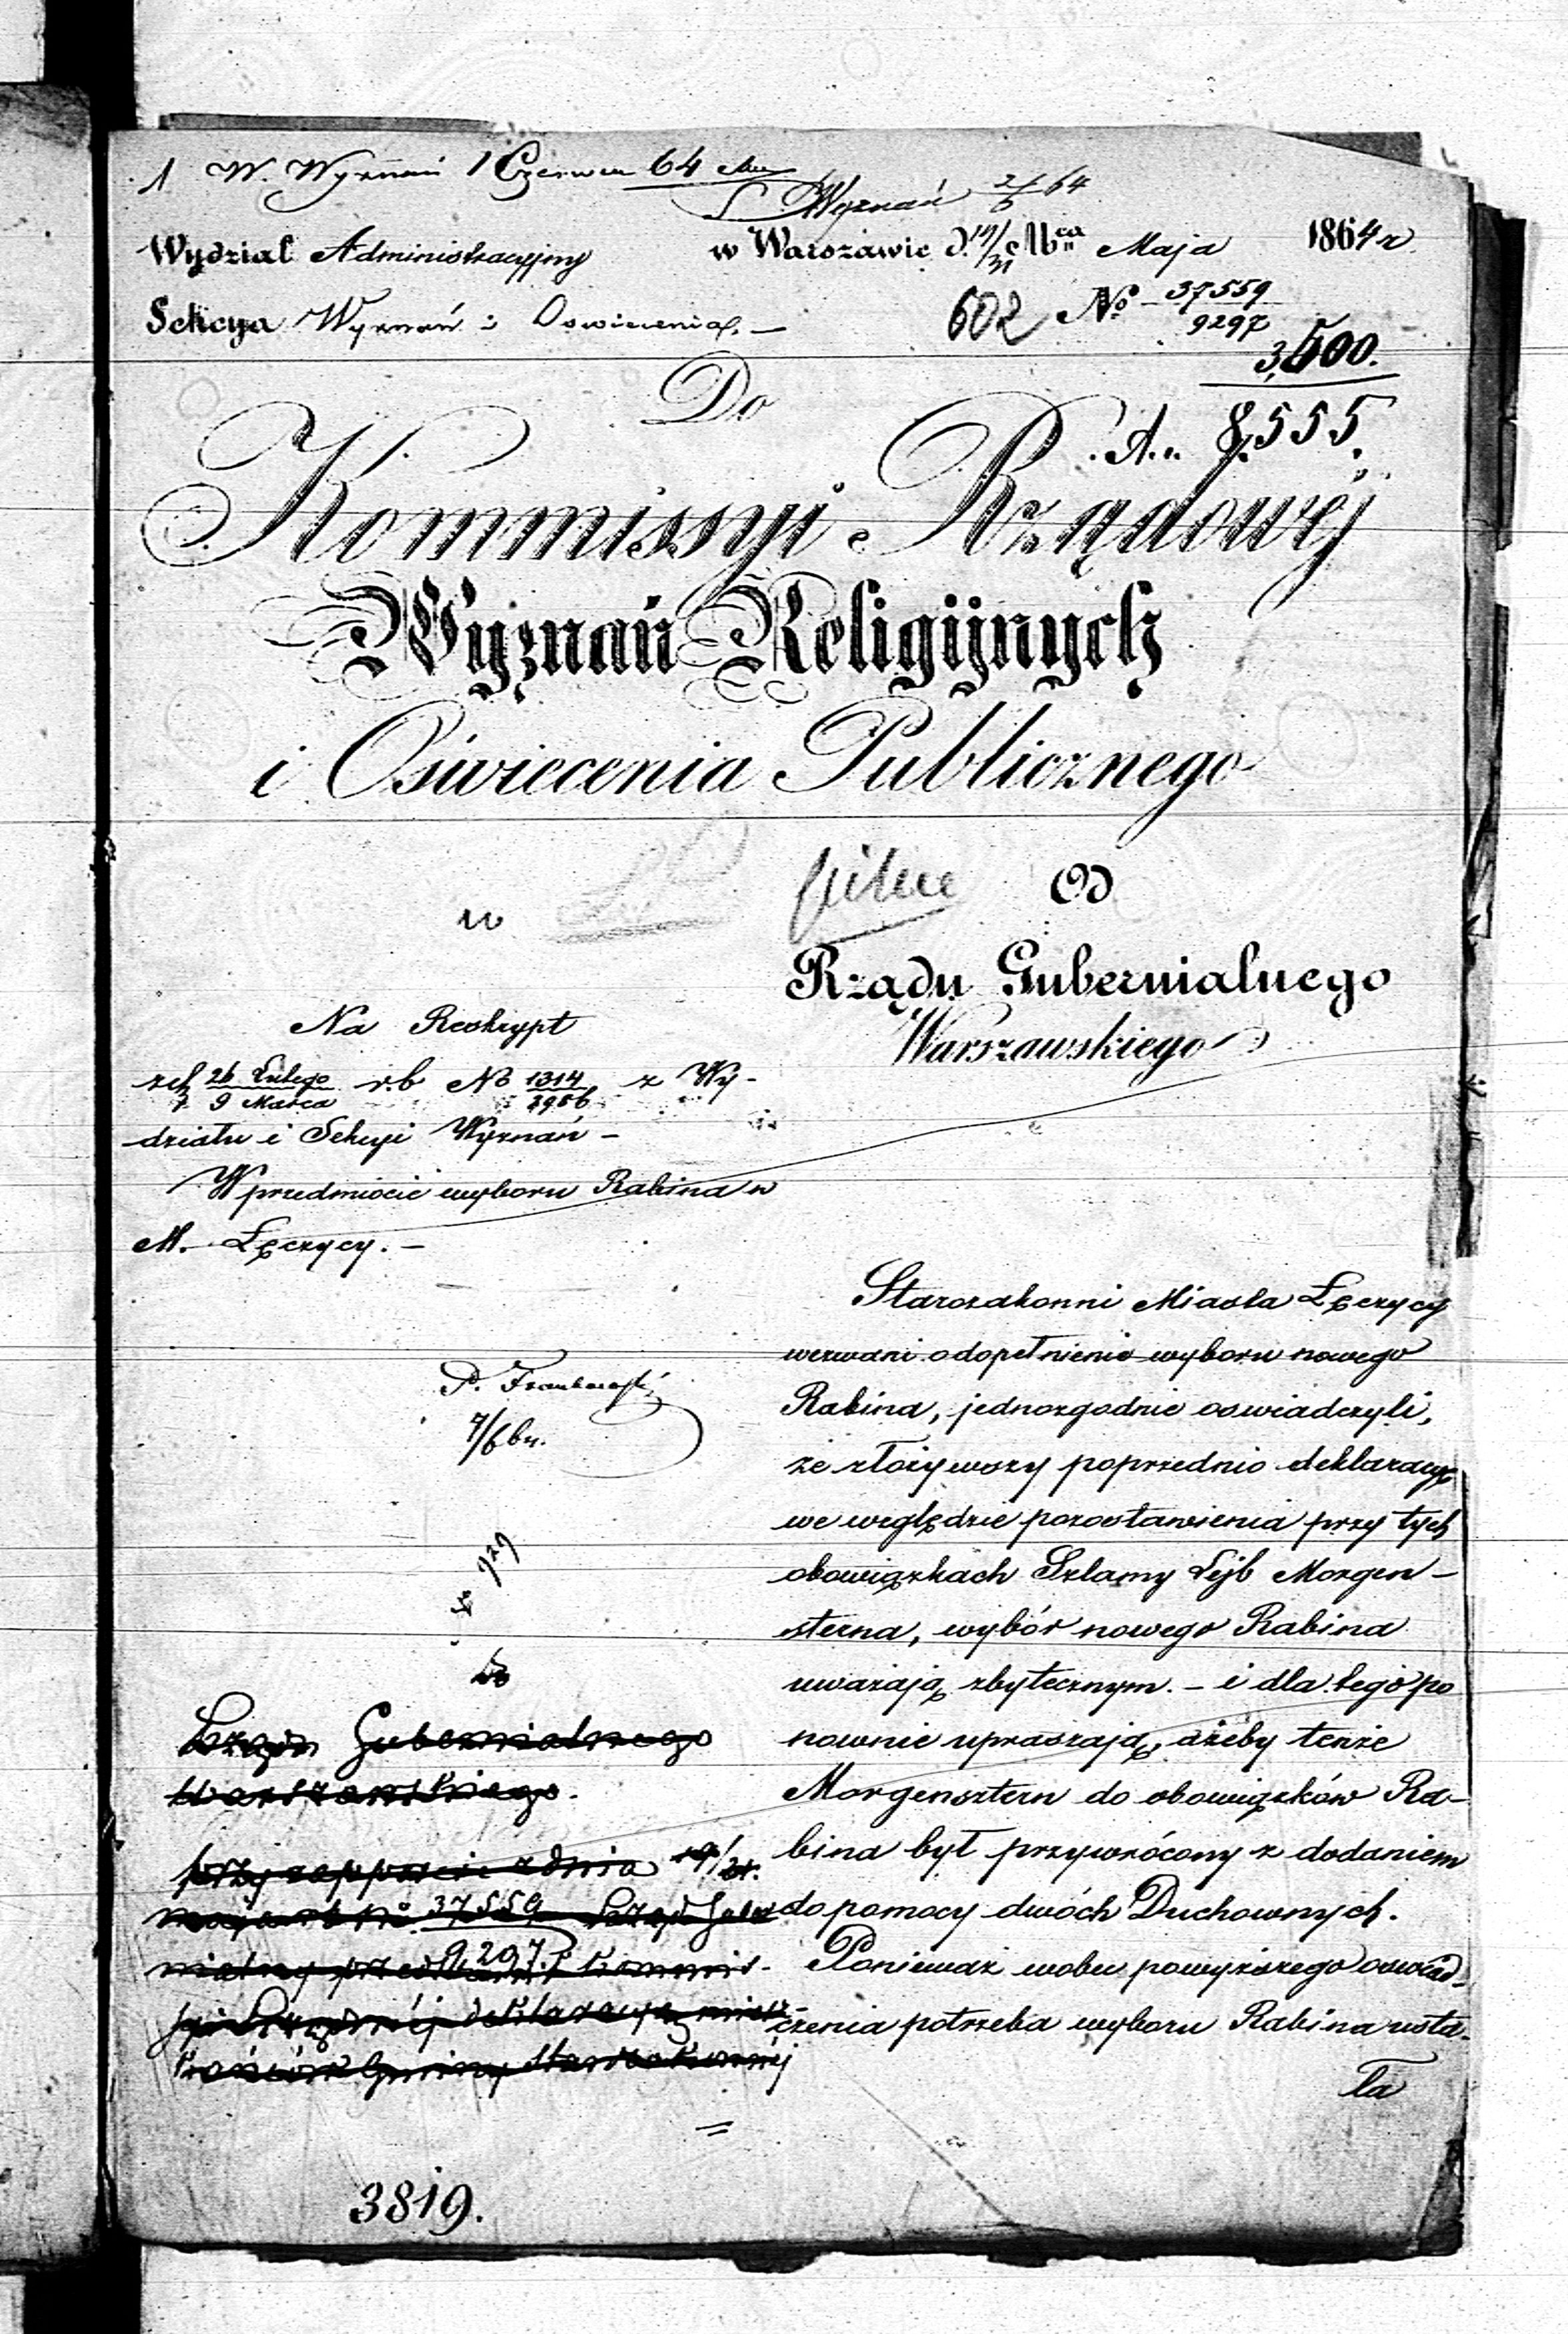 W. Wyznań 1 Czerwca 64
Wyznań 2/6 64
Wydział Administracyjny w Warszawie d. 19/31 Mca Maja 1864 r
Sekcya Wyznań i Oswiecenia. — 602 No 37559/9297
3,500.
A. 8,555.
Do
Kommissyi Rządowéj
Wyznań Religijnych
i Oświecenia Publicznego
w pilne Od
Rządu Gubernialnego
Warszawskiego
Na Reskrypt
z d. 26 Lutego/9 Marca r. b No 1314/2986 z Wy-
działu i Sekcyi Wyznań —
W przedmiocie wyboru Rabina w
M. Łęczycy. —
Starozakonni Miasta Łęczycy
wezwani o dopełnienie wyboru nowego
Rabina, jednozgodnie oswiadczyli,
że złożywszy poprzednio deklaracyę
we względzie pozostawienia przy tych
obowiązkach Szlamy Lejb Morgen-
sterna, wybór nowego Rabina
uważają zbytecznym. — i dla tego po
nownie upraszają, ażeby tenże
Morgensztern do obowiązków Ra-
bina był przywrócony z dodaniem
do pomocy dwóch Duchownych.
Ponieważ wobec powyższego oswiad-
czenia potrzeba wyboru Rabina usta-
ła
7/6 br.
929
Do
Rządu Gubernialnego
Warszawskiego.
przy rapporcie z dnia 19/31
maja r b No 37559/9297 Rząd Guber
nialny przedstawił Kommis-
syi Rządowéj deklaracyę miesz-
kańców Gminy Starozakonnéj
3819.